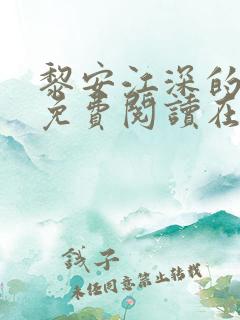 黎安江深的
免費閱讀在
錢子
未经同意禁止转载